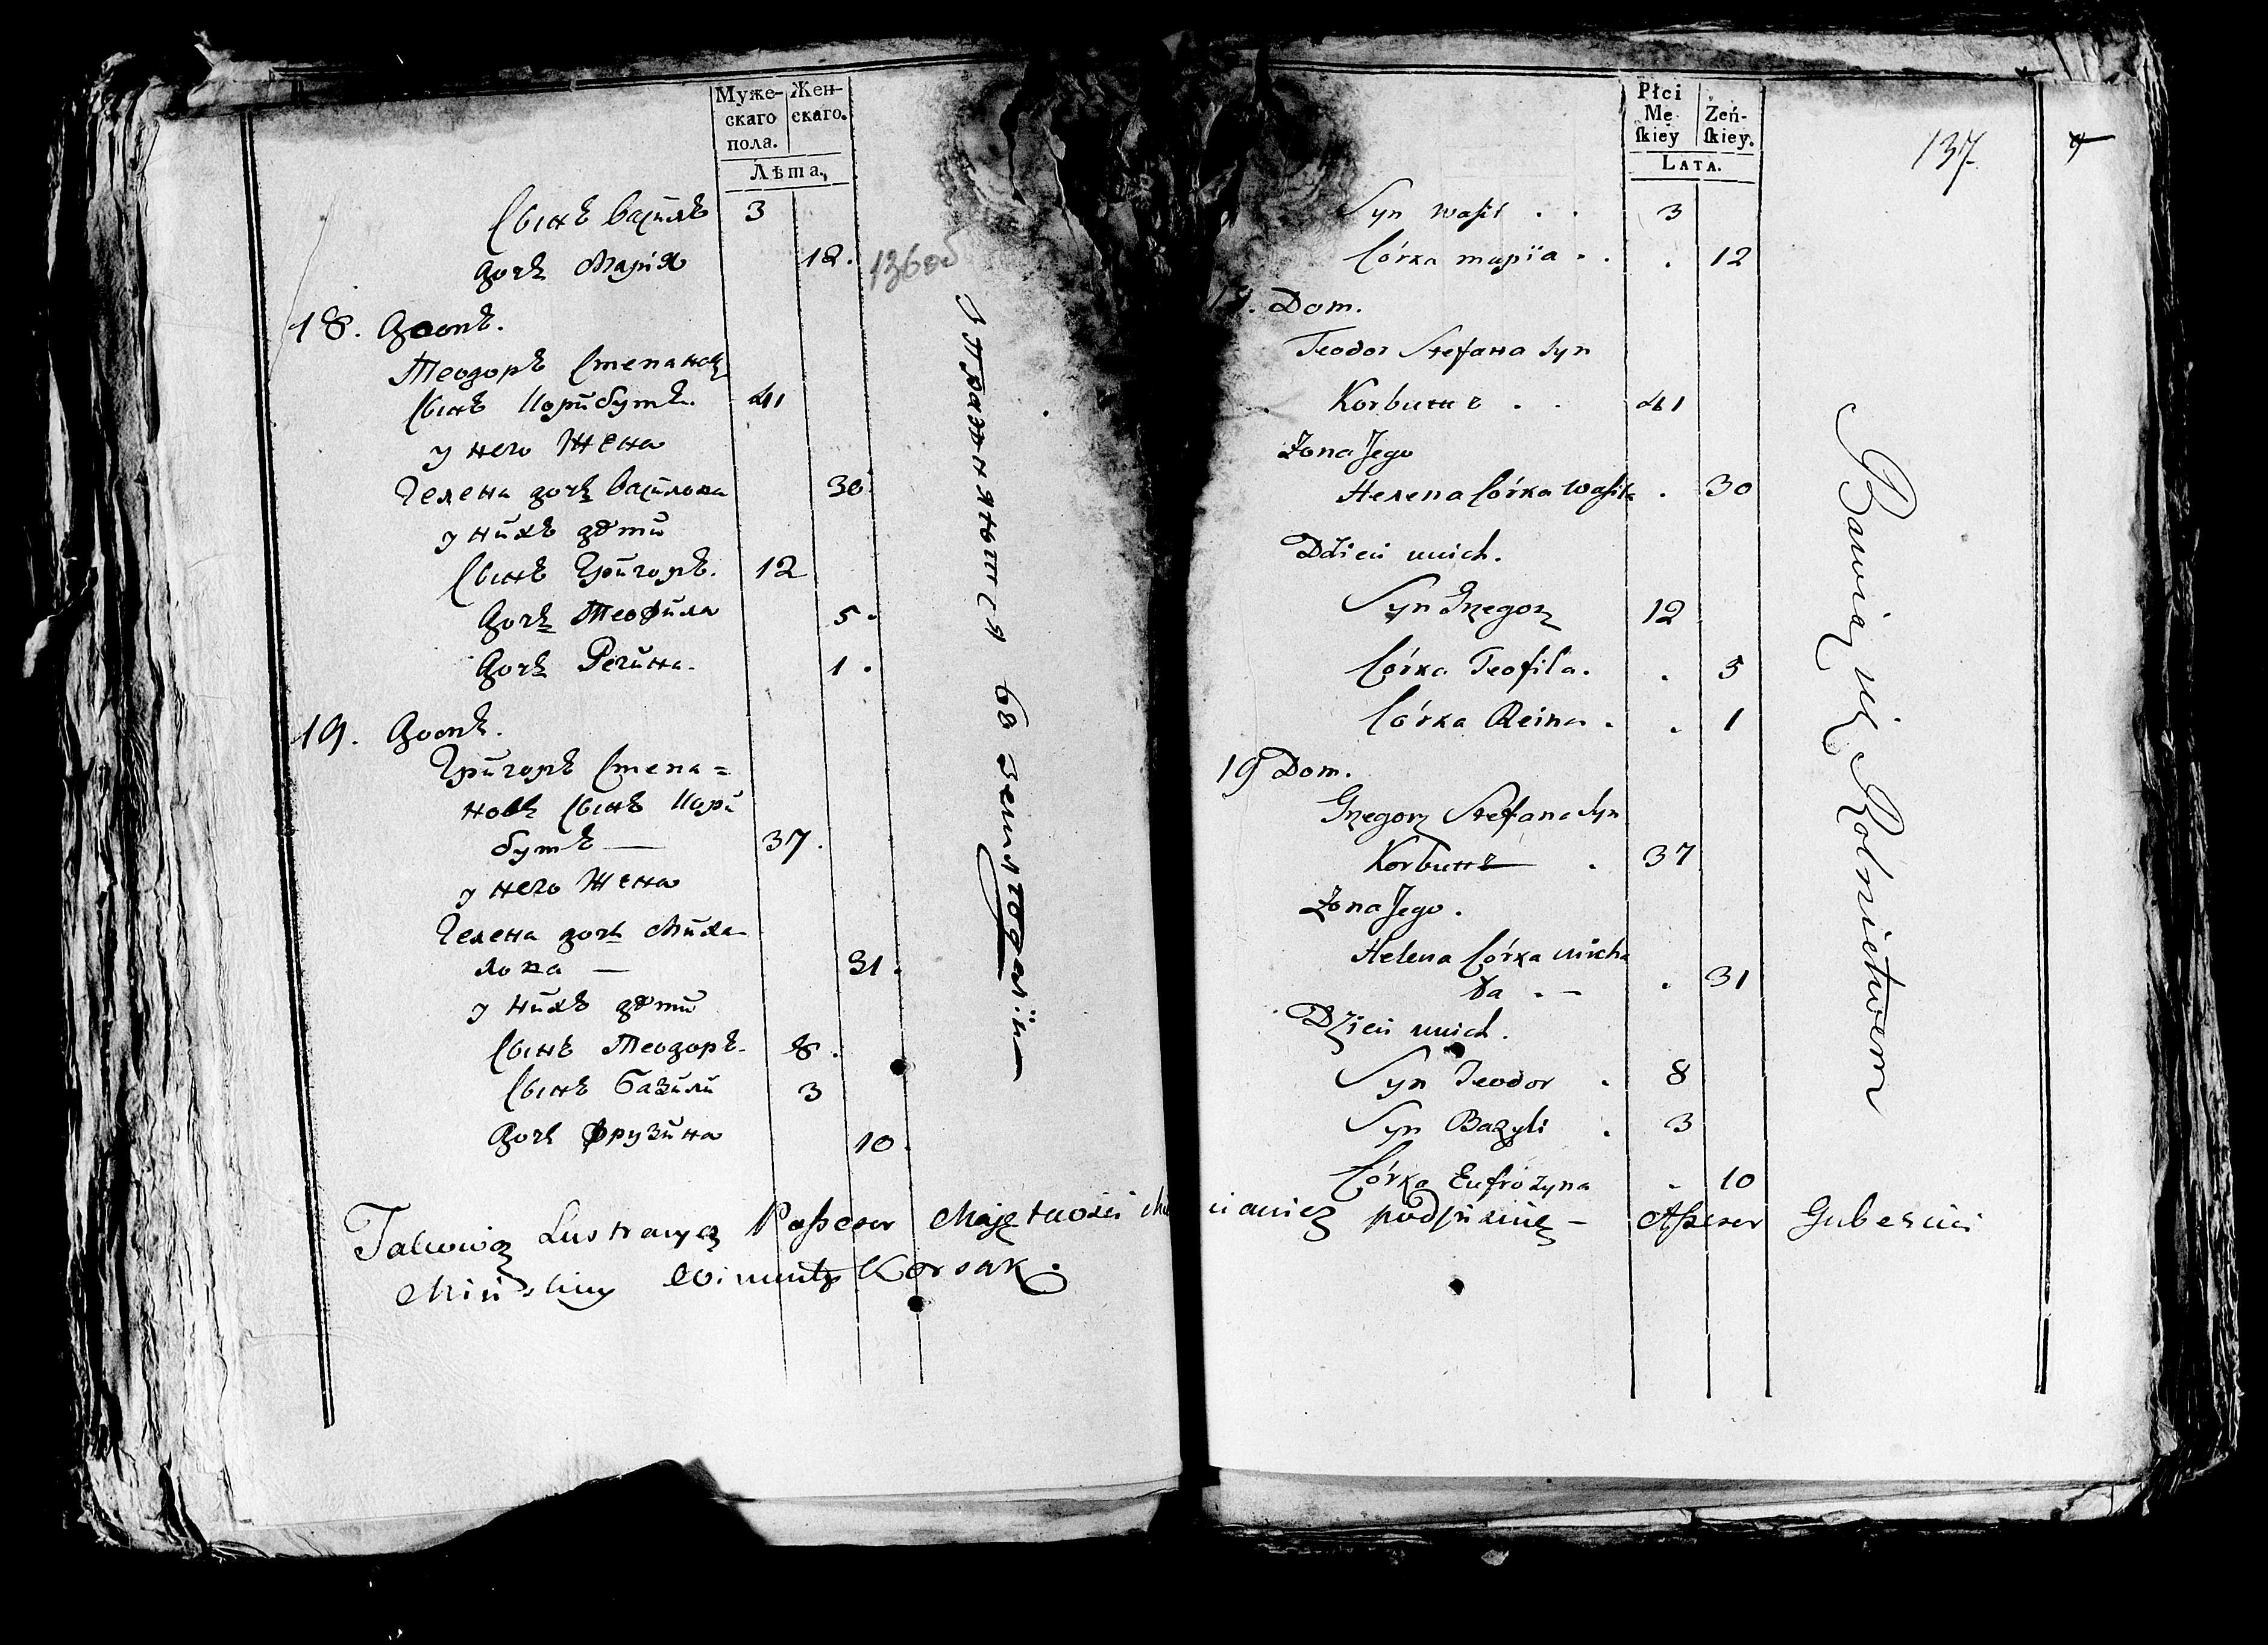 Муже-
скаго
пола.
Жен-
скаго.
Лѣта.
Сынъ Василь 3
дочь Марія 12.
136об
18. Домъ.
Теодоръ Степановъ
Сынъ Корибутъ. 41
у него Жена
Гелена дочь Василова 30
у нихъ дѣти
Сынъ Григоръ. 12
Дочь Теофила 5.
Дочь Регина. 1.
19. Домъ.
Григоръ Степа=
новъ Сынъ Кори
бутъ — 37.
у него Жена
Гелена дочь Миха
лова — 31.
у нихъ дѣти
Сынъ Теодоръ. 8.
Сынъ Базили 3
Дочь Фрузина 10.
Упражняются въ Земледелии
Płci
Mę
skiey
Żeń-
skiey.
LATA.
137
Syn Wasil . . 3
Córka Maria . . . 12
. Dom.
Teodor Stefana Syn
Korbutt . . 41
Żona Jego
Helena Córka Wasila . 30
Dzieci u nich.
Syn Grzegorz 12
Córka Teofila. . 5
Córka Reina . . 1
19 Dom.
Grzegorz Stefana Syn
Korbutt . 37
Żona Jego.
Helena Córka Micha
ła . – . 31
Dzieci u nich.
Syn Teodor . 8
Syn Bazyli . 3
Córka Eufrozyna . 10
Bawią się Rolnictwem
Takową Lustracyą Possesor Majętności podpisuię – Assesor Gubernii
Mińskiey Korsak.